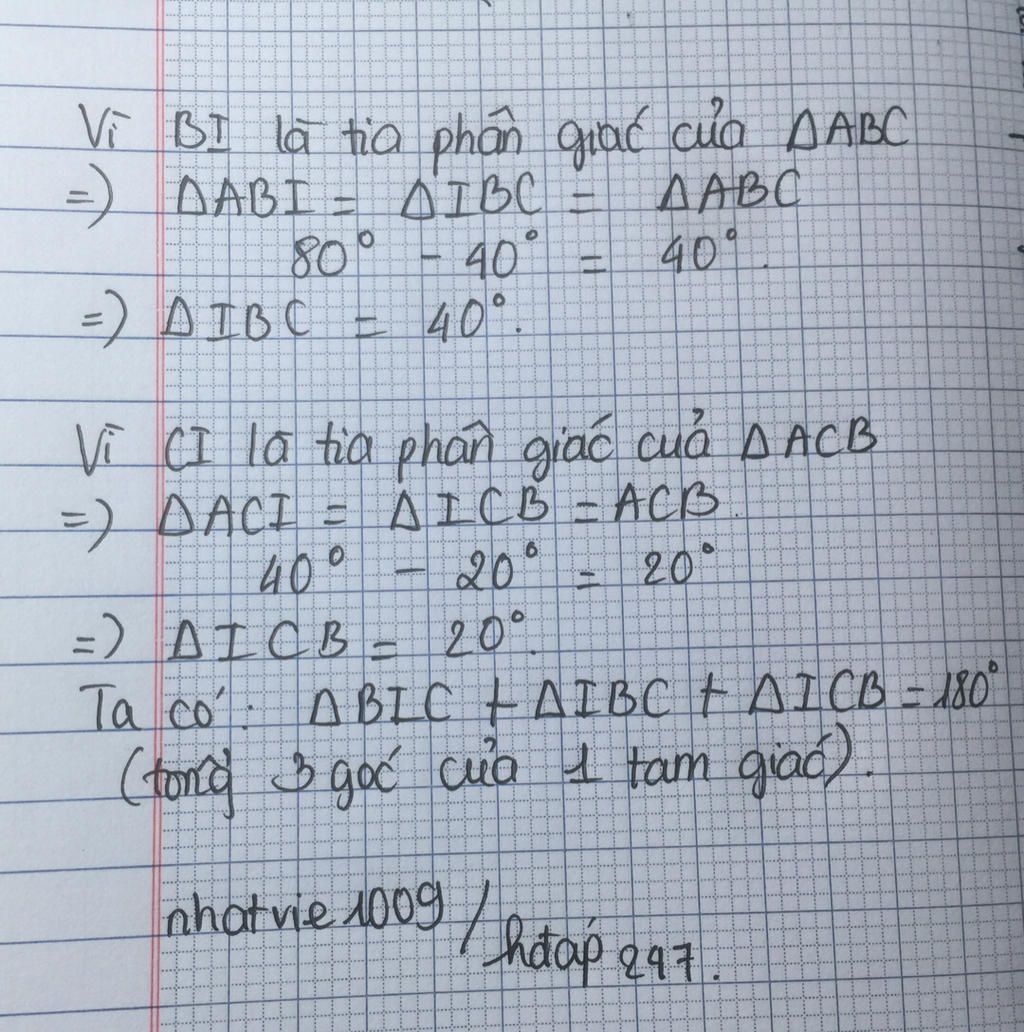 Vì BI là tia phân giác của ΔABC
=) ΔABI = ΔIBC = ΔABC
80° - 40° = 40°.
=) ΔIBC = 40°.
Vì CI là tia phân giác của ΔACB
=) ΔACI = ΔICB = ACB.
40° - 20° = 20°
=) ΔICB = 20°.
Ta có: ΔBIC + ΔIBC + ΔICB = 180°
(tổng 3 góc của 1 tam giác).
nhatvie1009 / hđáp 247.